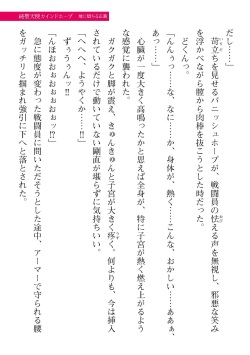 純悪大陸カインドホープ
だし……」
苛立ちを見せるバニッシュホープが、戦闘員の怯える声を無視し、邪悪な笑み
を浮かべながら膣から肉棒を抜こうとした時だった。
どくんっ。
「んんぅっ……な、なに……か、身体が、熱く……こんな、おかしい……ああぁ、
あっ……」
心臓が一度大きく高鳴ったかと思えば全身が、特に子宮が熱く燃え上がるよう
な感覚に襲われた。
ガクガクと脚が震え、きゅんきゅんと子宮が大きく疼く、何よりも、今は挿入
されているだけで動いていない剛直が堪らずに気持ちいい。
「へへへ、ようやくか……!!
ずぅうんっ!!
「んほおぉぉぉおぉぉっ!?」
急に態度が変わった戦闘員に問いただそうとした途中、アーマーで守られる腰
をガッチリと掴まれ強引に下へと落とされた。